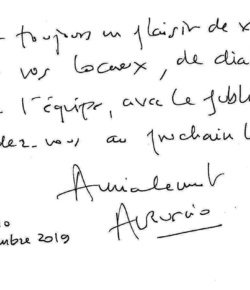 toujours un plaisir de
vos locaux, de dia
l'équipe, avec le publ
dez-vous au prochain l
Amicalement
mbre 2019